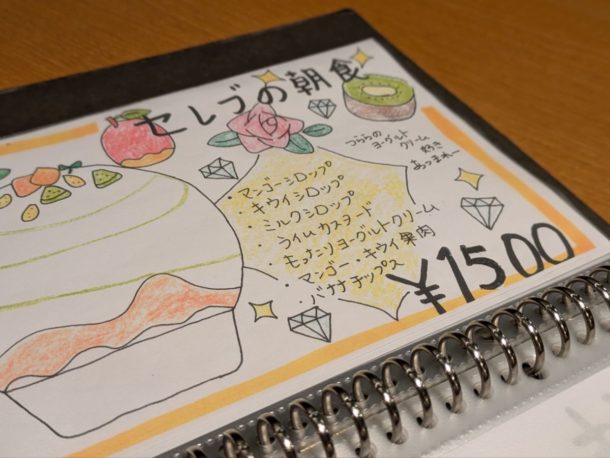 セレブの朝食
つららの
ヨーグルト
クリーム
好き
あつまれー
・マンゴーシロップ
キウイシロップ
・ミルクシロップ
・ライムカスタード
・モッツァリヨーグルトクリーム
・マンゴー・キウイ果肉
・バナナチップス
¥1500